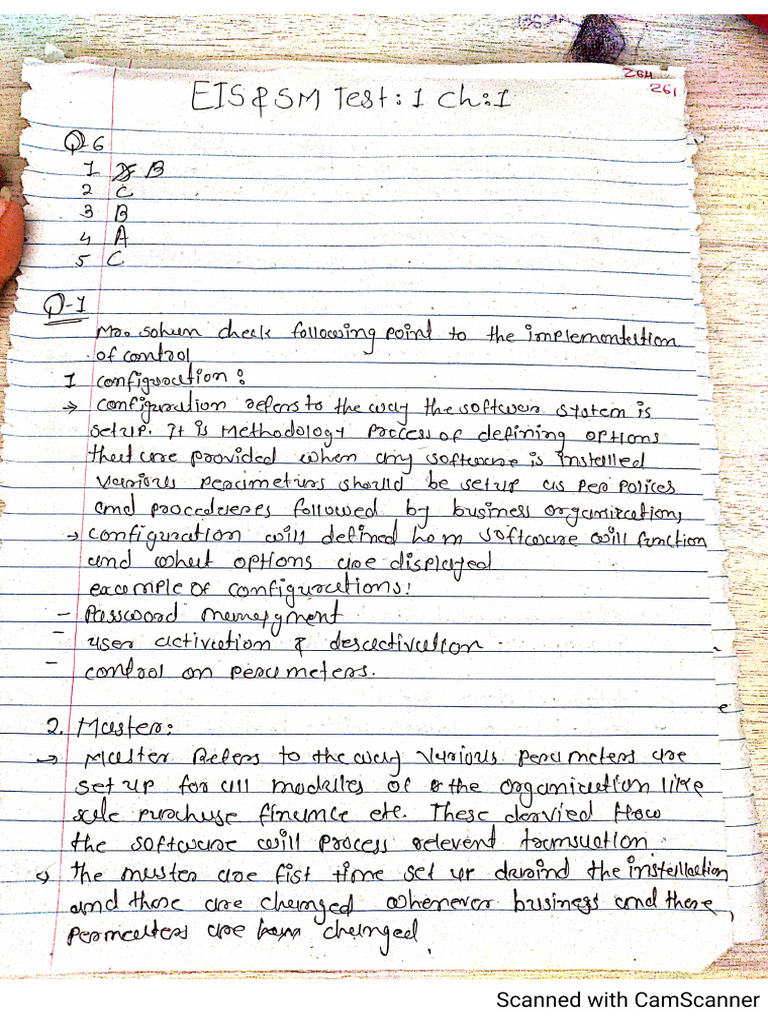 264
261
EIS & SM Test: 1 Ch: 1
Q-6
1 B
2 C
3 B
4 A
5 C
Q-1
Mr. sohan check following point to the implementation
of control
1 configuration:
→ configuration refers to the way the software system is
setup. it is Methodology process of defining options
that are provided when any software is installed
various perameters should be setup as per polices
and proceduers followed by business organization,
→ configuration will defined how software will function
and what options are displayed
example of configurations:
- Password
- user activation & desactivation.
- control on perameters.
2. Master:
→ Master Refers to the way various perameters are
set up for all modules of the organization like
sale purchase finance etc. These how
the software will process relevent
→ the master are fist time set up the
and those are changed whenever business and there
are changed,
Scanned with CamScanner